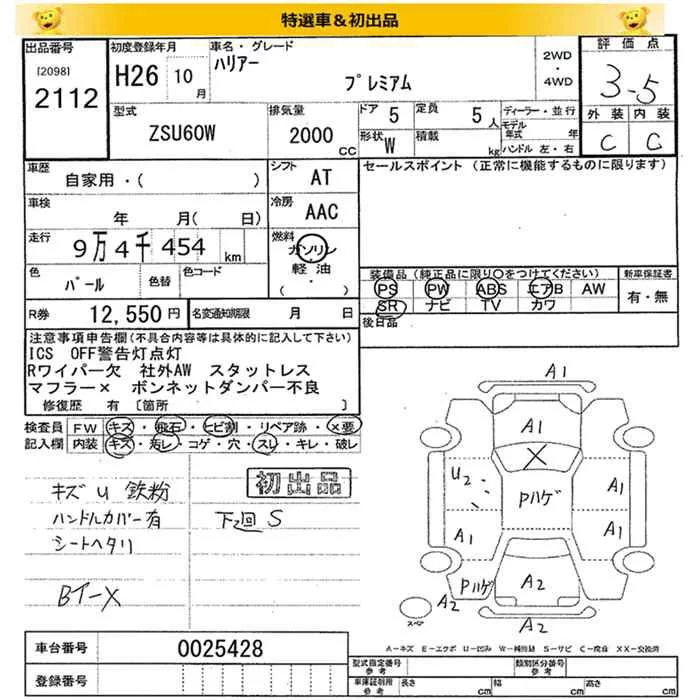 特選車&初出品
出品番号
(2098)
2112
初度登録年月
H26 10月
車名・グレード
ハリアー
プレミアム
2WD
・
4WD
評価点
3.5
外装 内装
C C
型式
ZSU60W
排気量
2000 CC
ドア 5
定員 5人
形状 W
積載 kg
ディーラー・並行
モデル年式 年
ハンドル 左・右
車歴
自家用・( )
シフト AT
セールスポイント (正常に機能するものに限ります)
車検
年 月( 日)
冷房 AAC
走行
9万4千454km
燃料
ガソリン
軽油
( ・ )
色
パール
色替
色コード
装備品 (純正品に限り○をつけてください)
新車保証書
PS PW ABS エアB AW
有・無
SR ナビ TV カワ
R券 12,550円
名変通知期限 月 日
後日品
注意事項申告欄(不具合内容等は具体的に記入して下さい)
ICS OFF警告灯点灯
Rワイパー欠 社外AW スタットレス
マフラー× ボンネットダンパー不良
修復歴 有 〔箇所 〕
検査員
FW キズ・飛石・ヒビ割・リペア跡・×要
記入欄
内装 キズ・汚レ・コゲ・穴・スレ・キレ・破レ
キズ U 鉄粉
初出品
ハンドルカバー有
下2回 S
シートヘタリ
Bイ-X
A1
A1
X
U2
Pハゲ
A1
A1
A1
Pハゲ
A2
A2
A2
スペアー
A-キズ E-エクボ U-凹み W-補修跡 S-サビ C-腐食 XX-交換済
車台番号
0025428
登録番号
型式指定番号
参考
類別区分番号
参考
車庫証明用
参考
長さ cm
幅 cm
高さ cm